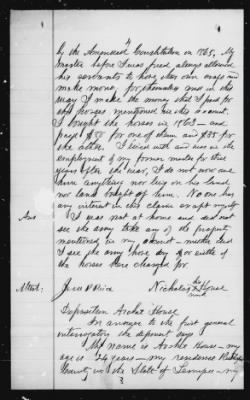 by the Amended Constitution in 1865, My
master before I was freed always allowed
his servants to have their own crops and
make money for themselves and in this
way I made the money that I paid for
the horses mentioned in this account.
I bought the horses in 1863 and
paid $50 for one of them and $35 for
the other. I lived with and was in the
employment of my former master for three
years after the war, I do not now owe
him anything nor live on his land,
nor land bought of him. No one has
any interest in this claim except myself
Ans I was not at home and did not
see the army take any of the property
mentioned in my account - neither did
I see the army have any or either of
the horses here charged for.
Attest: Nicholas his House
mark
Deposition Archie House
In answer to the first general
interrogatory the deponent says
My name is Archie House - my
age is 24 years - my residence
County in the State of Tennessee - my
3